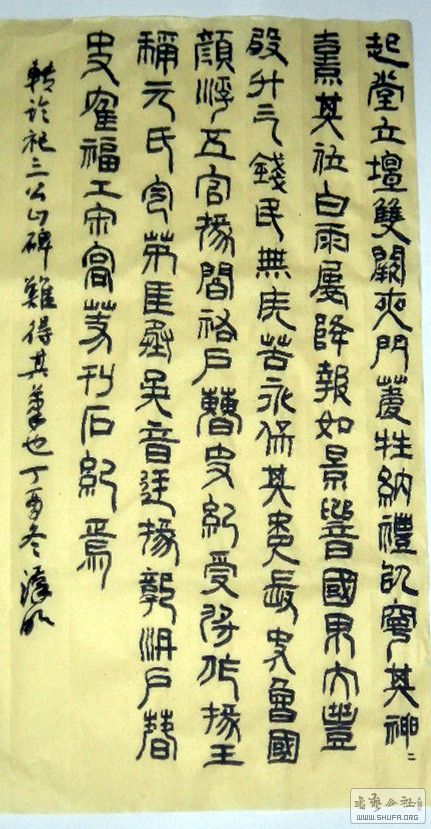 起堂立壇雙闕夾門薦牲納禮以寧其神〻
熹其位甘雨屢降報如景響國界大豐
穀升三錢民無疾苦永保其年長史魯國
顏浮五官掾閻祐戶曹史紀受將作掾王
稱元氏令茅匡丞吳音廷掾郭洪戶曹
史翟福工宋高等刊石紀焉
祀三公山碑難得其筆也丁酉冬
書藝公社
WWW.SHUFA.ORG